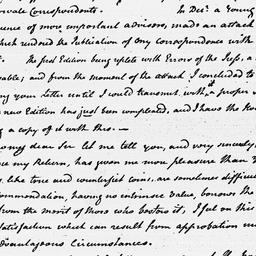 rivate Correspondents. In Decr a young
uence of more important advisors, made an attack
which rendered the Publication of any correspondence with
The first Edition being replete with Errors of the Press, a
vable; and from the moment of the attack I concluded to
ng your letter until I could transmit with a proper
new Edition has just been compleated, and I have the Ho
g a copy of it with this.—
my dear Sir let me tell you, and very sincerely
ce my Return, has given me more pleasure than
like true and counterfeit coins, are sometimes difficul
ommendation, having no extrinsic value, borrows the
from the merit of those who bestow it; I feel on this
satisfaction which can result from approbation un
dvantageous Circumstances.